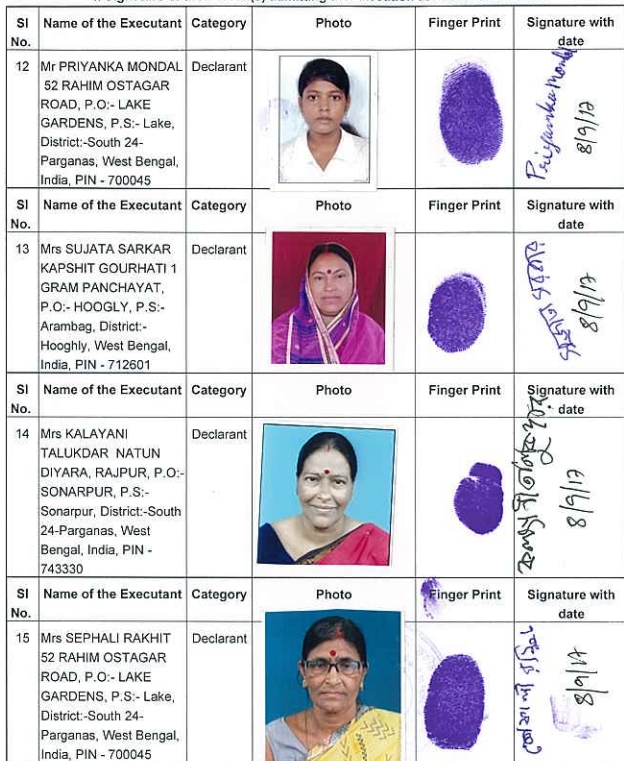 Sl No. Name of the Executant Category Photo Finger Print Signature with date
12 Mr PRIYANKA MONDAL Declarant
52 RAHIM OSTAGAR
ROAD, P.O:- LAKE
GARDENS, P.S:- Lake,
District:-South 24-
Parganas, West Bengal,
India, PIN - 700045
Priyanka Mondal
8/9/17
Sl No. Name of the Executant Category Photo Finger Print Signature with date
13 Mrs SUJATA SARKAR Declarant
KAPSHIT GOURHATI 1
GRAM PANCHAYAT,
P.O:- HOOGLY, P.S:-
Arambag, District:-
Hooghly, West Bengal,
India, PIN - 712601
সুজাতা সরকার
8/9/17
Sl No. Name of the Executant Category Photo Finger Print Signature with date
14 Mrs KALAYANI Declarant
TALUKDAR NATUN
DIYARA, RAJPUR, P.O:-
SONARPUR, P.S:-
Sonarpur, District:-South
24-Parganas, West
Bengal, India, PIN -
743330
8/9/17
Sl No. Name of the Executant Category Photo Finger Print Signature with date
15 Mrs SEPHALI RAKHIT Declarant
52 RAHIM OSTAGAR
ROAD, P.O:- LAKE
GARDENS, P.S:- Lake,
District:-South 24-
Parganas, West Bengal,
India, PIN - 700045
8/9/17